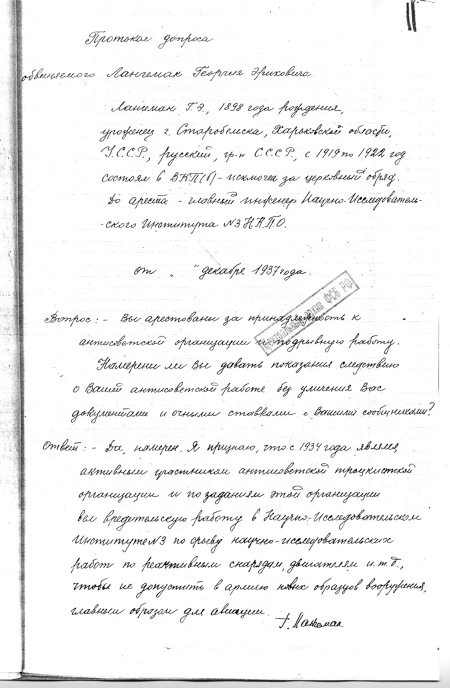 11
Протокол допроса
обвиняемого Лангемак Георгия Эриховича
Лангемак Г.Э., 1898 года рождения,
уроженец г. Старобельска, Харьковской области,
У.С.С.Р., русский, гр-н С.С.С.Р., с 1919 по 1922 год
состоял в ВКП(б) - исключен за церковный обряд.
До ареста - главный инженер Научно-Исследователь-
-ского Института №3 НКПО.
от „ " декабря 1937 года.
Центральный архив ФСБ РФ
Вопрос: - Вы арестованы за принадлежность к
антисоветской организации и подрывную работу.
Намерены ли Вы давать показания следствию
о Вашей антисоветской работе без уличения Вас
документами и очными ставками с Вашими сообщниками?
Ответ: - Да, намерен. Я признаю, что с 1934 года являлся
активным участником антисоветской троцкистской
организации и по заданиям этой организации
вел вредительскую работу в Научно-Исследовательском
Институте №3 по срыву научно-исследовательских
работ по реактивным снарядам, двигателям и т.д.,
чтобы не допустить в армию новых образцов вооружения,
главным образом для авиации.
Г. Лангемак